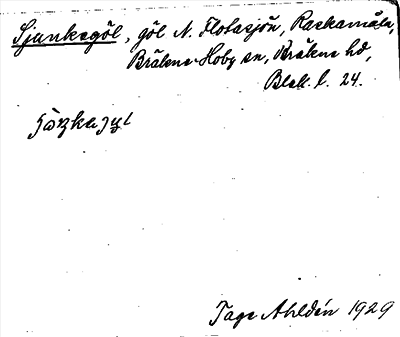 Sjunkagöl, göl N. Flotasjön, Rackamåla,
Bräkne-Hoby sn, Bräkne hd,
Blek. l. 24.
Tage Ahldén 1929